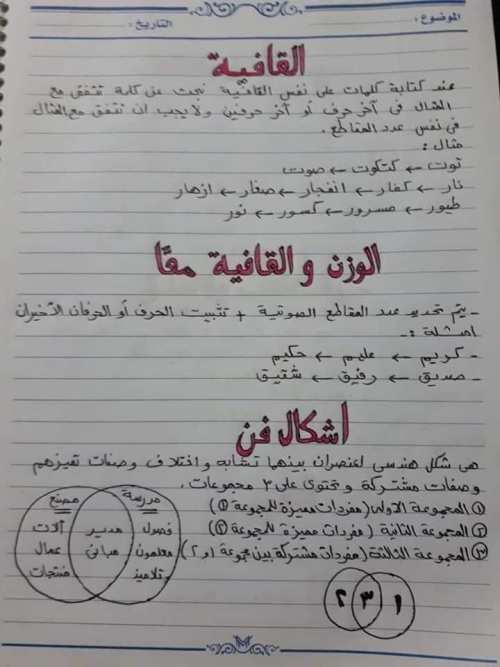 الموضوع: التاريخ:
القافية
عند كتابة كلمات على نفس القافية نبحث عن كلمة تتفق مع
المثال فى آخر حرف أو آخر حرفين ولا يجب ان تتفق مع المثال
فى نفس عدد المقاطع.
مثال:
توت ← كتكوت ← صوت
نار ← كفار ← انفجار ← صغار ← ازهار
طيور ← مسرور ← كسور ← نور
الوزن و القافية معًا
- يتم تحديد عدد المقاطع الصوتية + تثبيت الحرف أو الحرفان الأخيران
امثلة :-
- كريم ← عليم ← حكيم
- صديق ← رفيق ← شقيق
اشكال فن
هى شكل هندسى لعنصران بينهما تشابه و اختلاف وصفات تميزهم
وصفات مشتركة و تحتوى على ٣ مجموعات.
① المجموعة الاولى (مفردات مميزة للمجموعة ①)
② المجموعة الثانية (مفردات مميزة للمجموعة ②)
③ المجموعة الثالثة (مفردات مشتركة بين مجموعة ١و٢)
مدرسة مصنع
فصول مدير آلات
معلمون مبانى عمال
تلاميذ منتجات
١ ٣ ٢